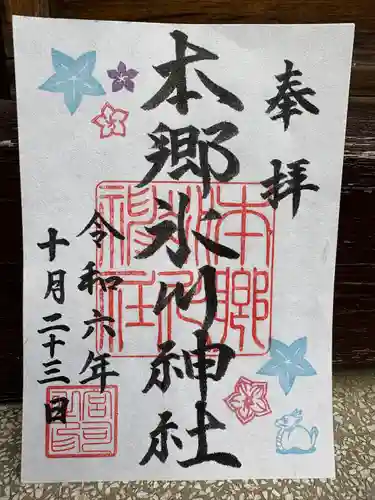 奉拝
本郷氷川神社
令和六年
十月二十三日
本郷
氷川
神社
宮司
之印